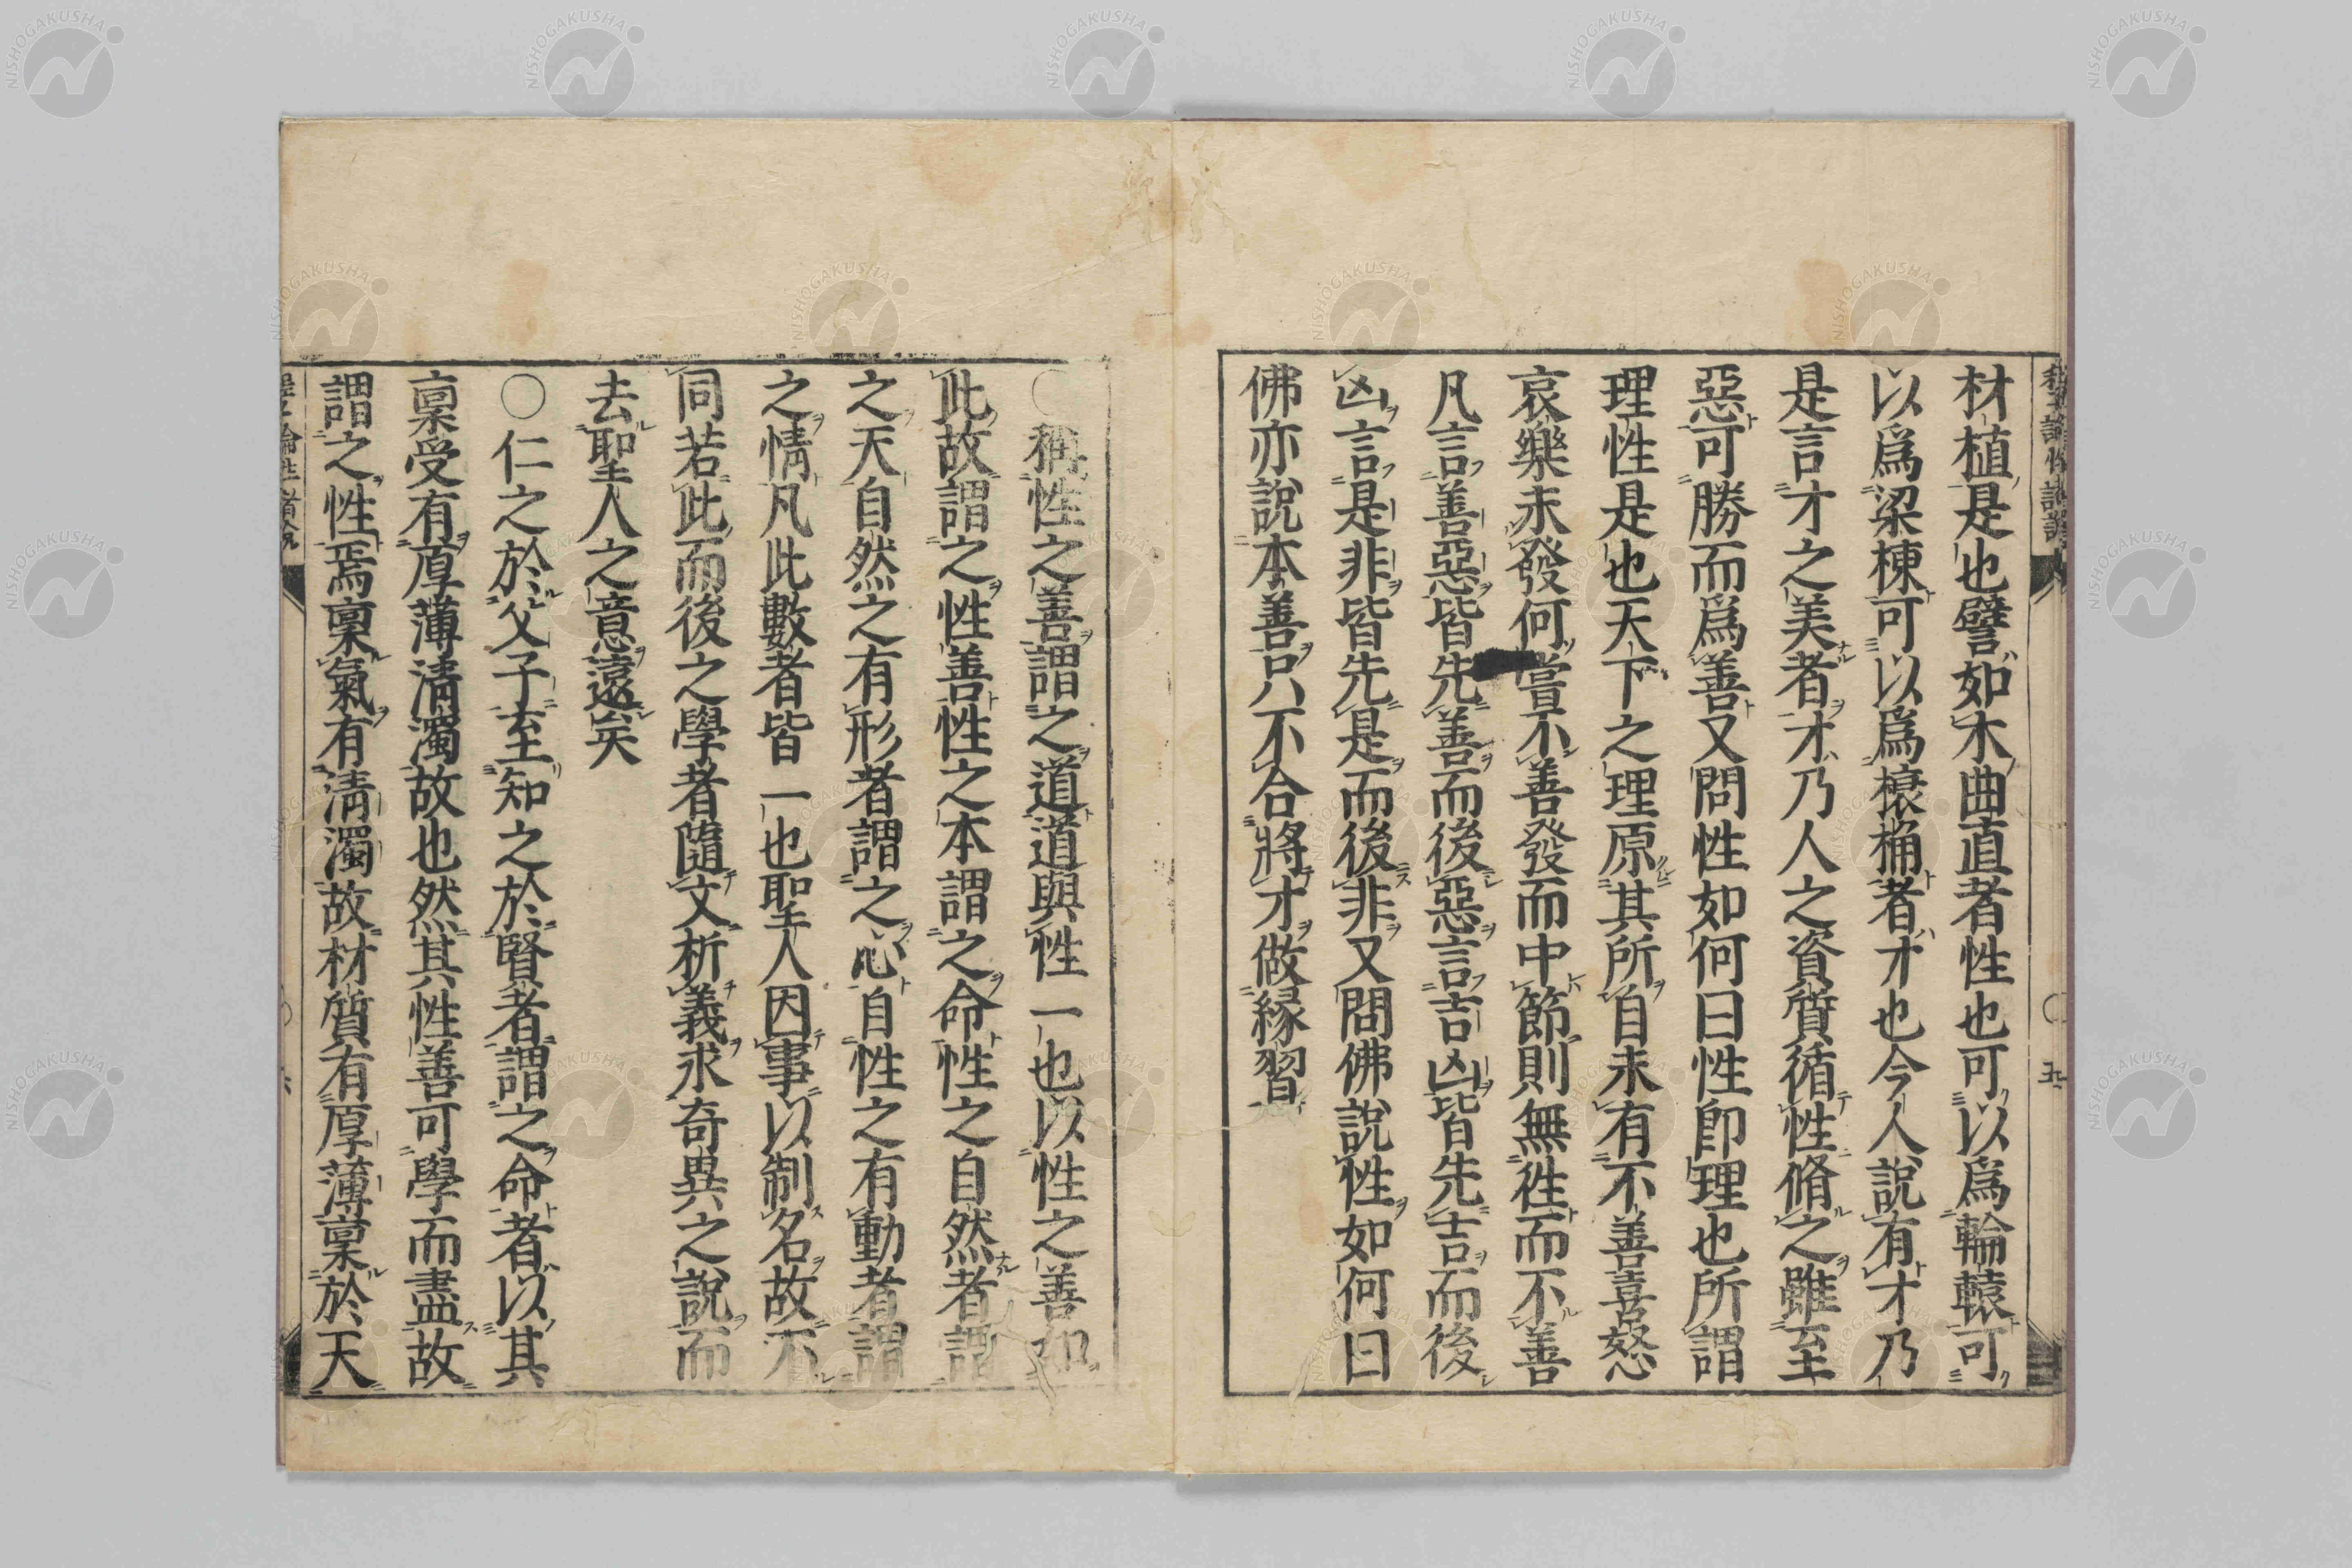 材植是也譬如木曲直者性也可以爲輪轅可
以爲梁棟可以爲榱桷者才也今人說有才乃
是言才之美者才乃人之資質循性脩之雖至
惡可勝而爲善又問性如何曰性卽理也所謂
理性是也天下之理原其所自未有不善喜怒
哀樂未發何嘗不善發而中節則無徃而不善
凡言善惡皆先善而後惡言吉凶皆先吉而後
凶言是非皆先是而後非又問佛說性如何曰
佛亦說本善只不合將才做縁習
○稱性之善謂之道道與性一也以性之善如
此故謂之性善性之本謂之命性之自然者謂
之天自然之有形者謂之心自性之有動者謂
之情凡此數者皆一也聖人因事以制名故不
同若此而後之學者隨文析義求奇異之說而
去聖人之意遠矣
○仁之於父子至知之於賢者謂之命者以其
稟受有厚薄淸濁故也然其性善可學而盡故
謂之性焉稟氣有淸濁故材質有厚薄稟於天